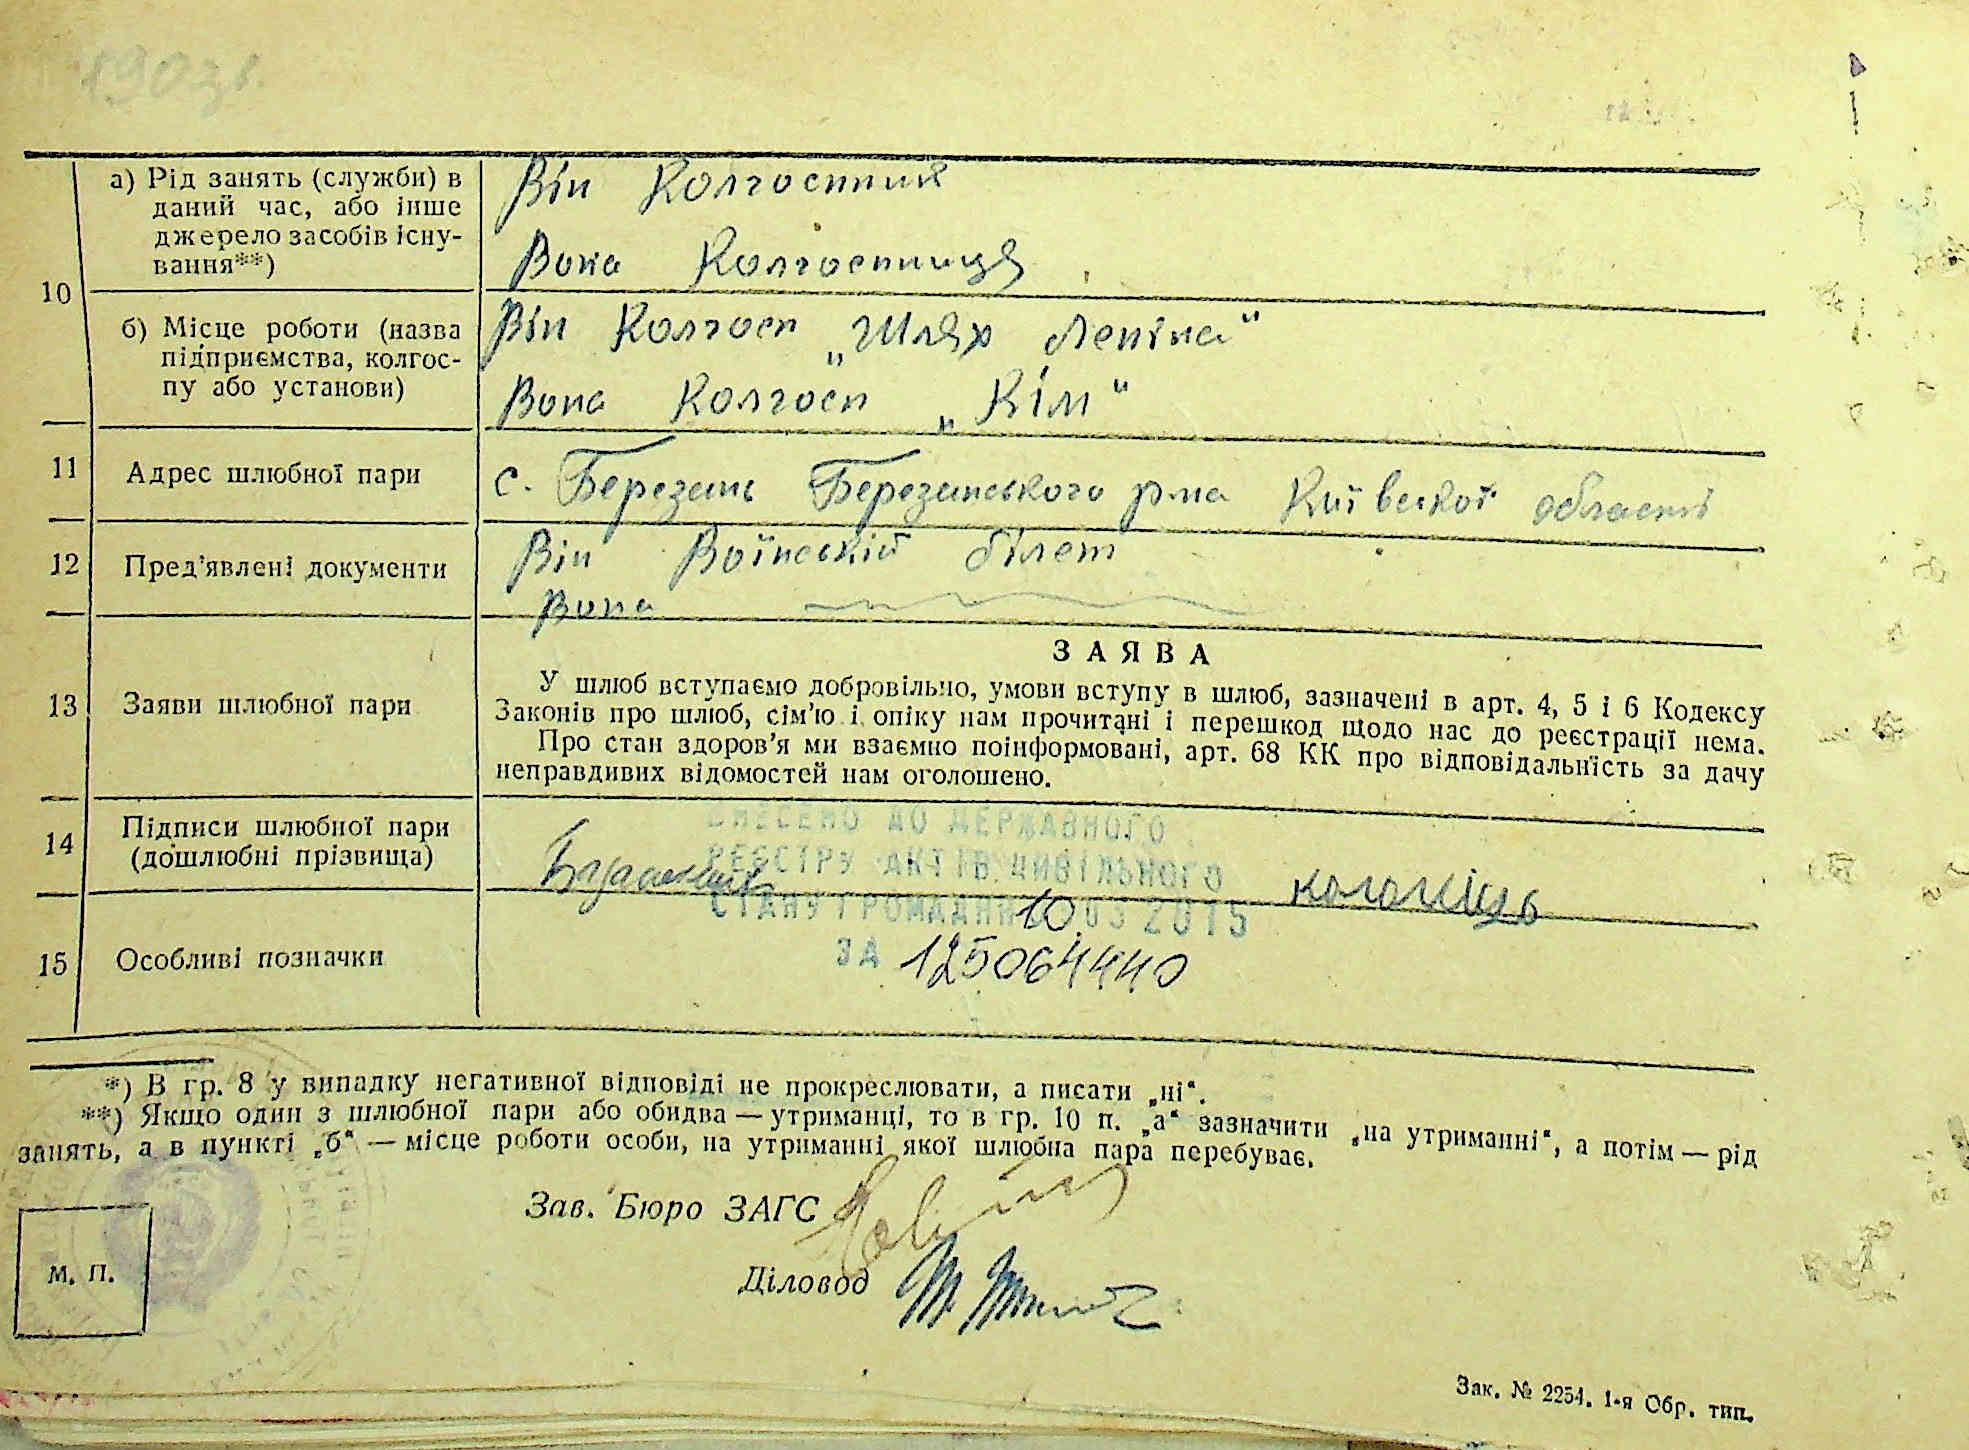 190зв.
а) Рід занять (служби) в
даний час, або інше
джерело засобів існу-
вання**)
Він Колгоспник
Вона Колгоспниця
10
б) Місце роботи (назва
підприємства, колгос-
пу або установи)
Він Колгосп „Шлях Леніна“
Вона Колгосп „Кім“
11
Адрес шлюбної пари
с. Березань Березанського р-на Київської області
12
Пред’явлені документи
Він Воїнській білет
Вона
13
Заяви шлюбної пари
ЗАЯВА
У шлюб вступаємо добровільно, умови вступу в шлюб, зазначені в арт. 4, 5 і 6 Кодексу
Законів про шлюб, сім’ю і опіку нам прочитані і перешкод щодо нас до реєстрації нема.
Про стан здоров’я ми взаємно поінформовані, арт. 68 КК про відповідальність за дачу
неправдивих відомостей нам оголошено.
14
Підписи шлюбної пари
(дошлюбні прізвища)
ВНЕСЕНО ДО ДЕРЖАВНОГО
РЕЄСТРУ АКТІВ ЦИВІЛЬНОГО
СТАНУ ГРОМАДЯН 10 03 2015
ЗА 125064440
15
Особливі позначки
*) В гр. 8 у випадку негативної відповіді не прокреслювати, а писати „ні“.
**) Якщо один з шлюбної пари або обидва — утриманці, то в гр. 10 п. „а“ зазначити „на утриманні“, а потім — рід
занять, а в пункті „б“ — місце роботи особи, на утриманні якої шлюбна пара перебуває.
Зав. Бюро ЗАГС
Діловод
М. П.
Зак. № 2254. 1-я Обр. тип.